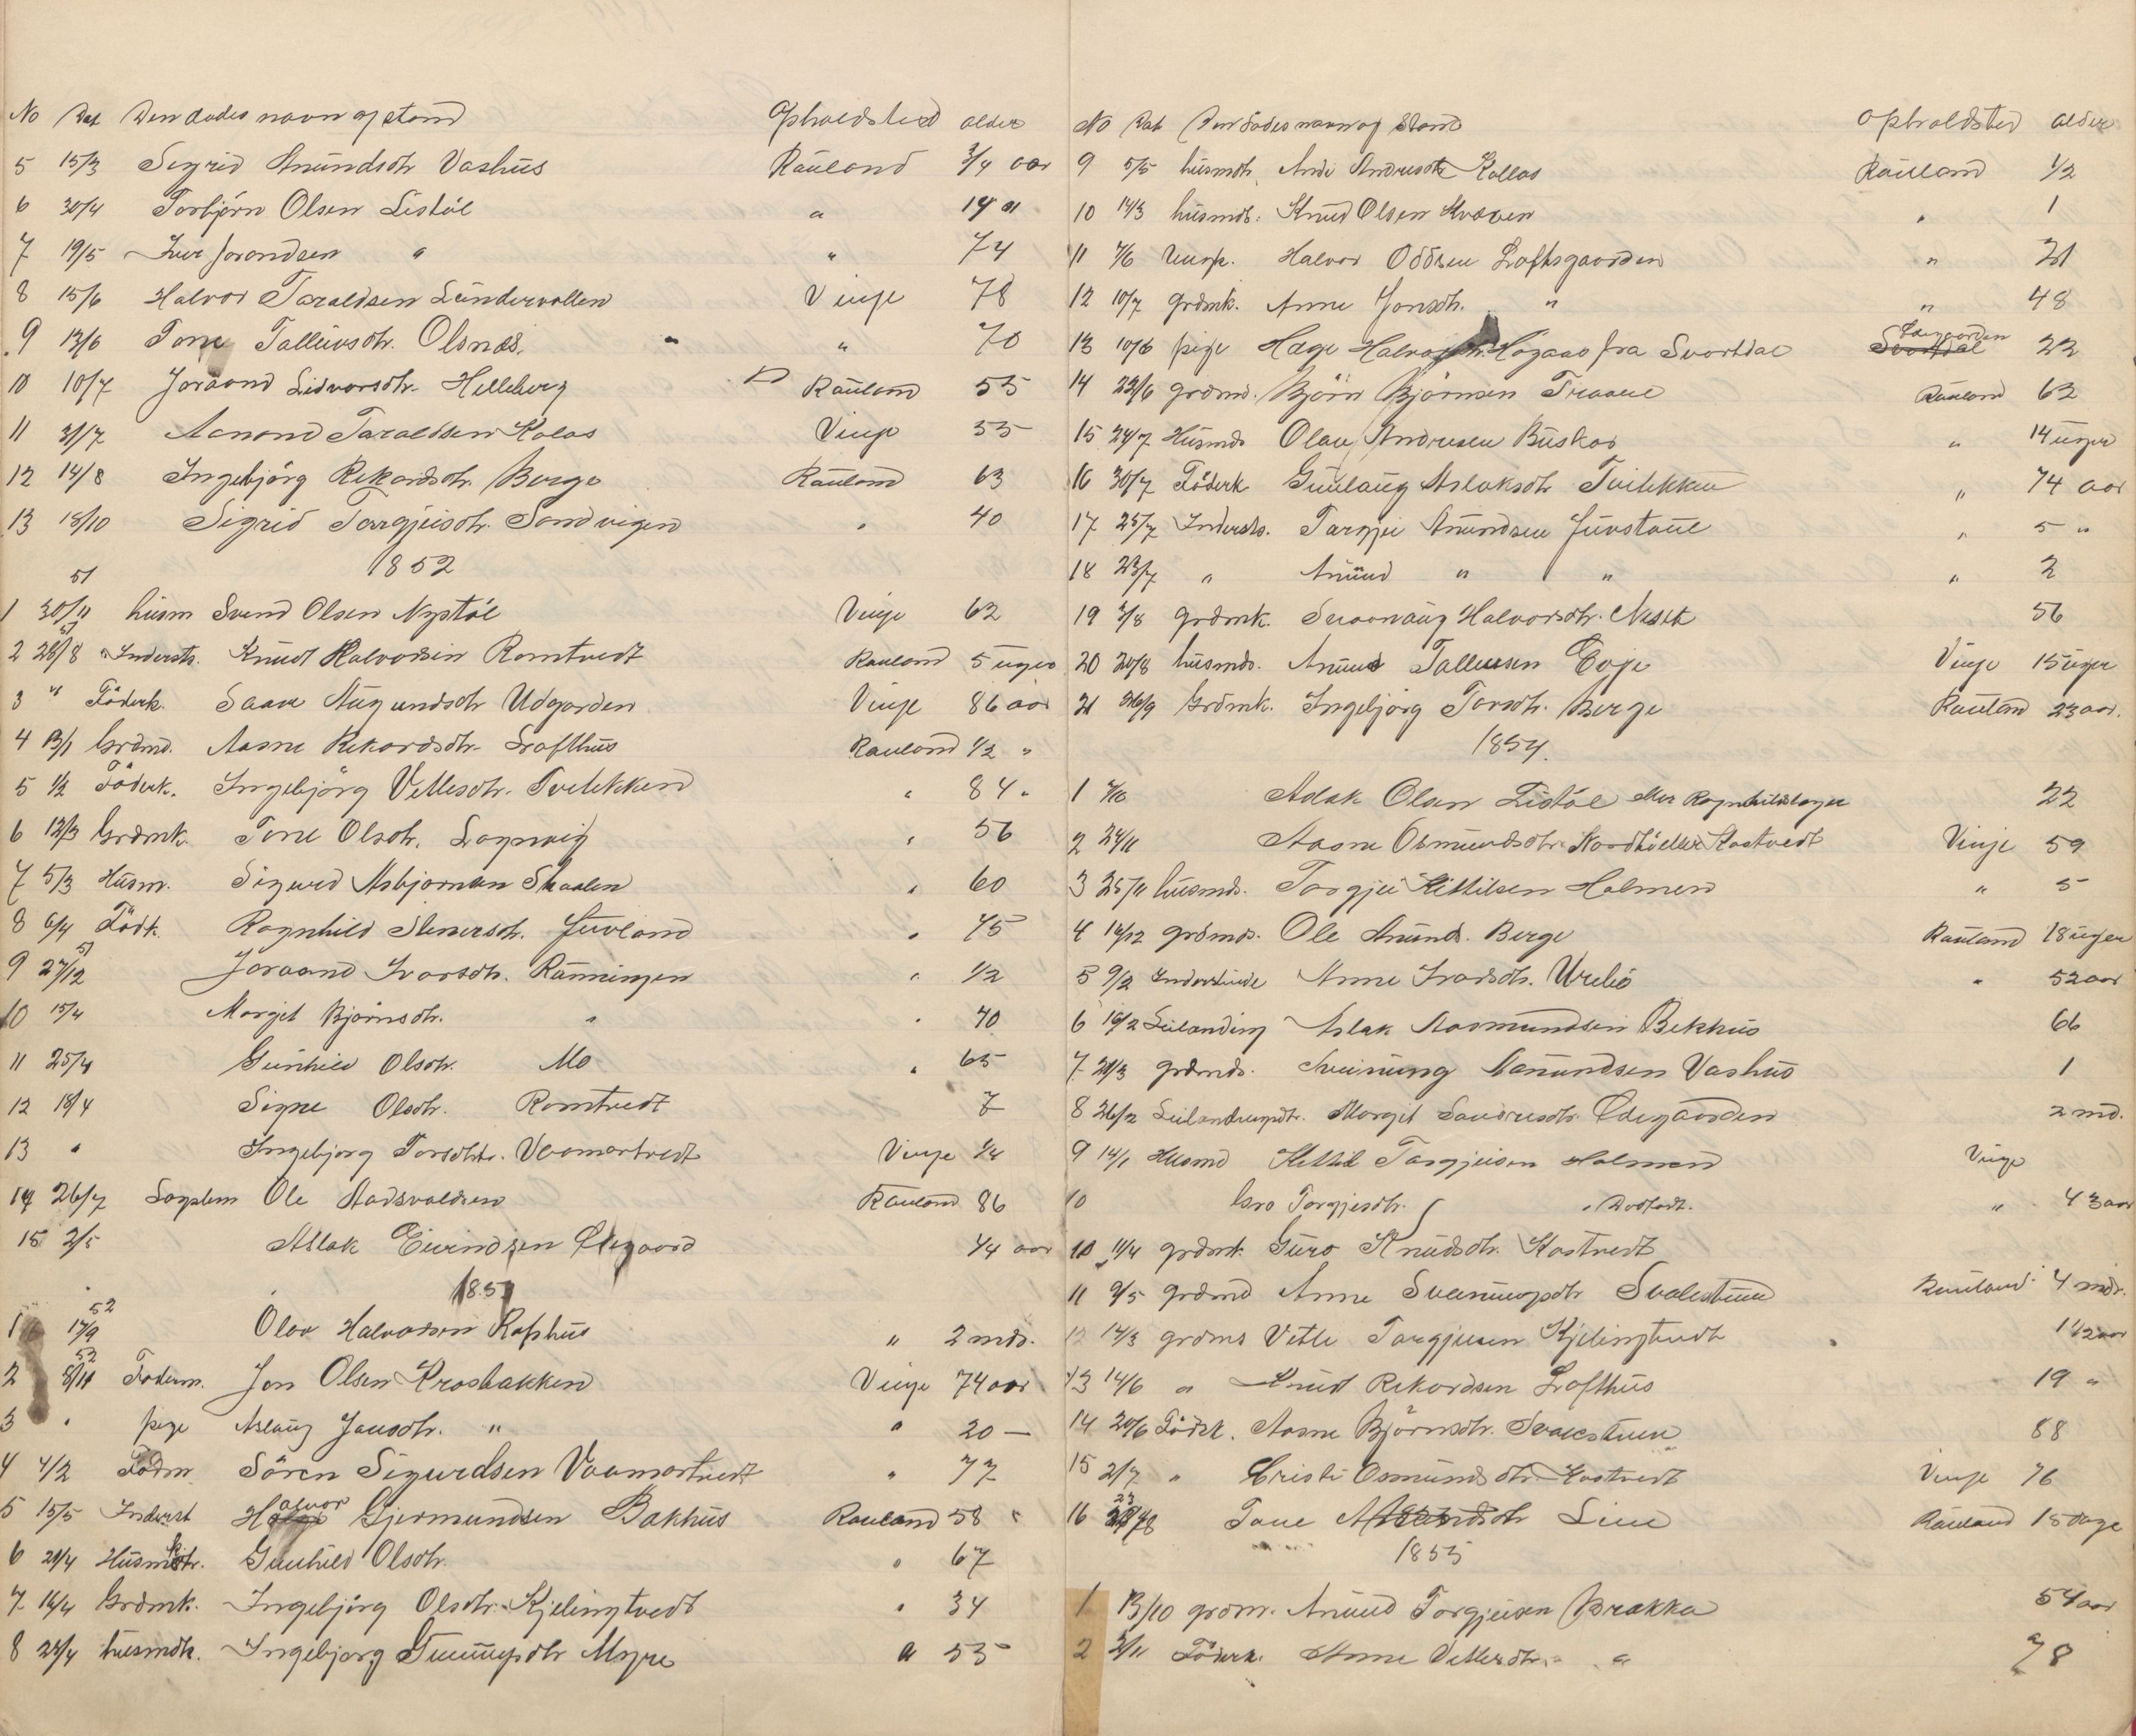 No Dat Den dødes navn og stand Opholdsted alder
5 15/3 Sigrid Anundsdtr Vashus Rauland 3/4 aar
6 30/4 Torbjörn Olsen Listöl " 14 "
7 19/5 Iver Jorandsen " " 74
8 15/6 Halvor Taraldsen Lündervollen Vinje 78
9 13/6 Tone Tallevsdtr. Olsnæs " 70
10 10/7 Joraand Lidvorsdtr. Helleberg Rauland 55
11 31/7 Aanond Taraldsen Kolos Vinje 55
12 14/8 Ingebjörg Rekordsdtr. Berge Rauland 63
13 18/10 Sigrid Torgjeisdtr. Sandvigen " 40
1852
51
1 30/11 husm Svend Olsen Nystöl Vinje 62
51
2 28/8 Indersts. Knud Halvorsen Romtvedt Rauland 5 uger
3 " Föderk. Saave Augundsdtr Udgarden Vinje 86 aar
4 13/1 Grdmd. Aasne Rekordsdtr. Lofthus Rauland 1/2 "
5 1/2 Föderk. Ingebjörg Vetlesdtr. Tveitekken " 84 "
6 12/3 Grdmk. Tone Olsdtr. Lognvig " 56
7 5/3 Husm. Sigurd Asbjornsen Skaalen " 60
8 6/4 Födk. Ragnhild Stenersdtr. Juvland " 75
51
9 27/12 Joraand Ivorsdtr. Ranningen " 1/2
10 15/4 Margit Björnsdtr. " " 70
11 25/4 Gunhild Olsdtr. Mo " 65
12 18/4 Signe Olsdtr. Romtvedt 7
13 " Ingebjorg Torsdtr. Vaamartvedt Vinje 1/4
14 26/7 Lægslem Ole Aadsvaldsen Rauland 86
15 2/5 Aslak Eivindsen Ødegaard 1/4 aar
1853
52
1 17/9 Olav Halvorsen Rafshus " 2 mds.
52
2 8/11 Föderm. Jon Olsen Krosbakken Vinje 74 aar
3 " pige Aslaug Jonsdtr. " " 20 —
4 4/2 Födm Sören Sigurdsen Vaamartvedt " 77
5 15/5 Inderst Halvor Gjermundsen Bakhus Rauland 58 "
6 21/4 Husmk. Gunhild Olsdtr. " 67
7 16/4 Grdmk. Ingebjörg Olsdtr. Kjelingtvedt " 34
8 23/4 husmdk. Ingebjorg Tveinungsdtr Myre " 55
No Dat Den dødes navn og stand opholdsted alder
9 5/5 husmdtr. Ande Andresdtr Kollos Rauland 1/2
10 14/3 husmds. Knud Olsen Kvæven " 1
11 7/6 Ungk. Halvor Oddsen Loftsgaarden " 31
12 10/7 grdmk. Anne Jonsdtr. " " 48
13 10/6 pige Hæge Halvorsdtr. Högaas fra Svortdal 22
14 22/6 grdmd. Björn Björnsen Traaen Rauland 62
15 24/7 Husmds Olav Andresen Buskos " 14 uger
16 30/7 Föderk Gunlaug Aslaksdtr Tveitekken " 74 aar
17 25/7 Indersts. Targjei Anundsen Juvstaul " 5 "
18 23/7 " Anund " " " 2
19 3/8 grdmk. Svaanaug Halvorsdtr. Neset 56
20 20/8 husmds. Anund Tallevsen Evje Vinje 15 uger
21 26/9 Grdmk. Ingebjörg Torsdtr. Berge Rauland 23 aar.
1854.
1 7/10 Aslak Olsen Listöl eller Ragnhildsloger 22
2 24/11 Aasne Osmundsdtr. Nordbö eller Kostvedt Vinje 59
3 25/11 husmds. Torgjei Kittilsen Holmen " 5
4 14/12 grdmds. Ole Anunds. Berge Rauland 18 uger
5 9/2 Inderstinde Anne Ivarsdtr. Urebö " 52 aar
6 16/2 Leilanding Aslak Aasmundsen Bekkhus 66
7 21/3 grdmds. Sveinung Aanundsen Vashus 1
8 26/2 Leilandingsdtr. Margit Sandresdtr. Ødegaarden 2 md.
9 14/1 Husmd Kittil Torgjeisen Holmen Vinje
10 Gro Torgjeisdtr. " " 43 aar
10 11/4 grdmk. Guro Knudsdtr. Kostvedt
11 9/5 grdmd Anne Sveinungsdtr Svalestuen Rauland 4 mdr.
12 14/3 grdms Vetle Torgjeisen Kjelingtvedt 1 1/2 aar
13 14/6 " Knud Rekordsen Lofthus 19 "
14 20/6 Födsk. Aasne Björnsdtr. Svalestuen 88
15 2/7 " Cristi Osmundsdtr. Kostvedt Vinje 76
16 Tone Liem Rauland 15 dage
1855
1 13/10 grdm. Anund Torgjeisen Brakka 54 aar
2 3/11 Föderk. Anne Vetlesdtr. " 78